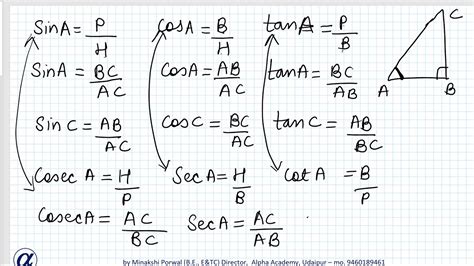 SinA = P/H cosA = B/H tanA = P/B
SinA = BC/AC CosA = AB/AC tanA = BC/AB
Sin C = AB/AC Cos C = BC/AC tan C = AB/BC
Cosec A = H/P Sec A = H/B Cot A = B/P
Cosec A = AC/BC Sec A = AC/AB
C
A
B
by Minakshi Porwal (B.E., E&TC) Director, Alpha Academy, Udaipur – mo. 9460189461